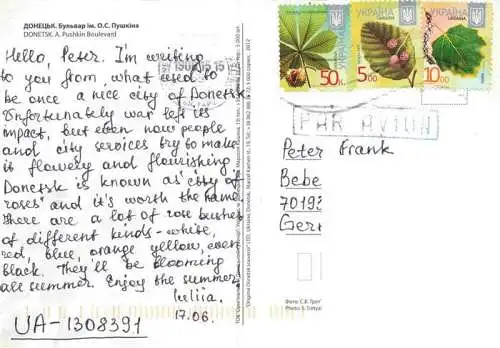 ДОНЕЦЬК. Бульвар ім. О.С. Пушкіна
DONETSK. A. Pushkin Boulevard
Hello, Peter. I'm writing
to you from what used to
be once a nice city of Donetsk
Unfortunately war left its
impact, but even now people
and city services try to make
it flowery and flourishing
Donetsk is known as "city of
roses" and it's worth the name.
There are a lot of rose bushes
of different kinds - white,
red, blue, orange yellow, even
black. They'll be blooming
all summer. Enjoy the summer!
Iuliia.
17.06.
UA-1308391
УКРАЇНА
UKRAINA
50к
УКРАЇНА
UKRAINA
5.00
УКРАЇНА
UKRAINA
10.00
PAR AVION
Peter Frank
Bebe
70193
Ger